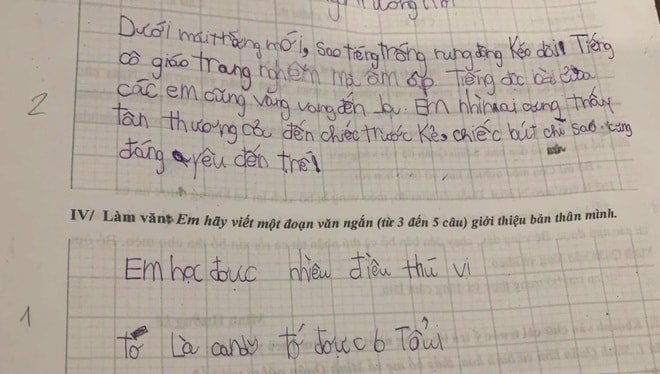 Dưới mái trường mới, sao tiếng trống rung động kéo dài! Tiếng
cô giáo trang nghêm mà ấm áp. Tiếng đọc bài của
các em cũng vang vang đến lạ. Em nhìn ai cũng thấy
tân thương cả đến chiếc thước kẻ, chiếc bút chì sao cũng
đáng yêu đến thế!
2
IV/ Làm văn: Em hãy viết một đoạn văn ngắn (từ 3 đến 5 câu) giới thiệu bản thân mình.
Em học đục nhiều điều thú vi
1
tớ là candy tớ đưuc 6 Tổi